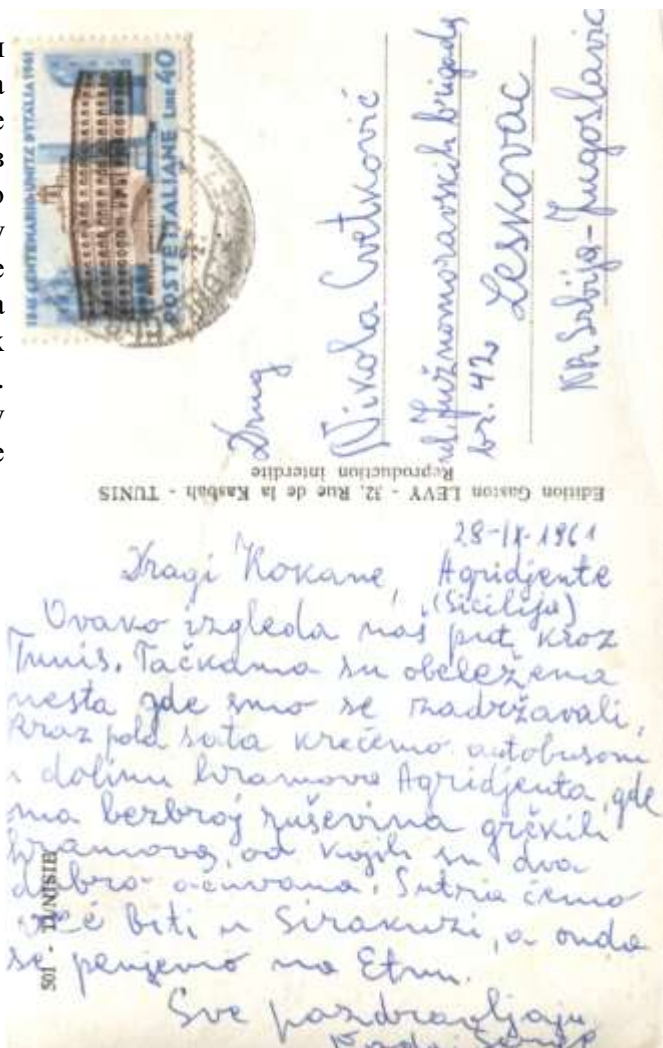 1861 CENTENARIO UNITÀ D'ITALIA 1961
POSTE ITALIANE LIRE 40
Drug
Nikola Cvetković
ul Južnomoravskih brigada
br. 42
Leskovac
NR Srbija-Jugoslavija
Edition Gaston LEVY - 32, Rue de la Kasbah - TUNIS
Reproduction interdite
28-IX-1961
Dragi Kokane, Agridjente
(Sicilija)
Ovako izgleda naš put kroz
Tunis. Tačkama su obeležena
mesta gde smo se zadržavali,
Kroz pola sata krećemo autobusom
u dolinu hramova Agridjenta, gde
ima bezbroj ruševina grčkih
hramova, od kojih su dva
dobro očuvana. Sutra ćemo
već biti u Sirakuzi, a onda
se penjemo na Etnu.
Sve pozdravljaju
501 - TUNISIE